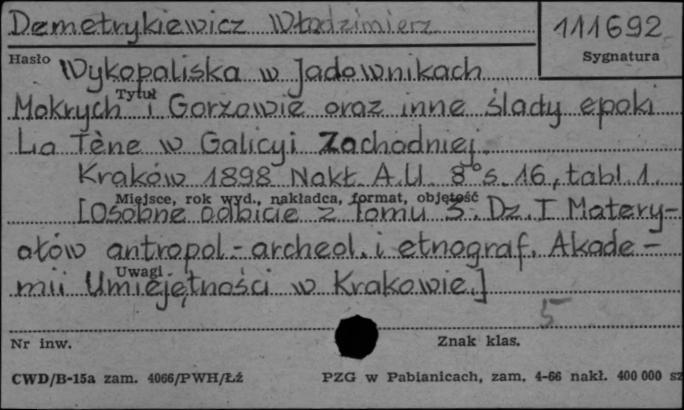 Demetrykiewicz Włodzimierz
111692
Hasło
Sygnatura
Wykopaliska w Jadownikach
Tytuł
Mokrych i Gorzowie oraz inne ślady epoki
La Tène w Galicyi Zachodniej.
Kraków 1898 Nakł. A.U. 8° s. 16, tabl. 1.
Miejsce, rok wyd., nakładca, format, objętość
[Osobne odbicie z Tomu 3. Dz. I Matery-
ałów antropol.-archeol. i etnograf. Akade-
Uwagi
mii Umiejętności w Krakowie.]
5
Nr inw.
Znak klas.
CWD/B-15a zam. 4066/PWH/Łź
PZG w Pabianicach, zam. 4-66 nakł. 400 000 sz